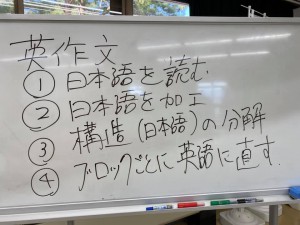 英作文
① 日本語を読む
② 日本語を加工
③ 構造(日本語)の分解
④ ブロックごとに英語に直す.